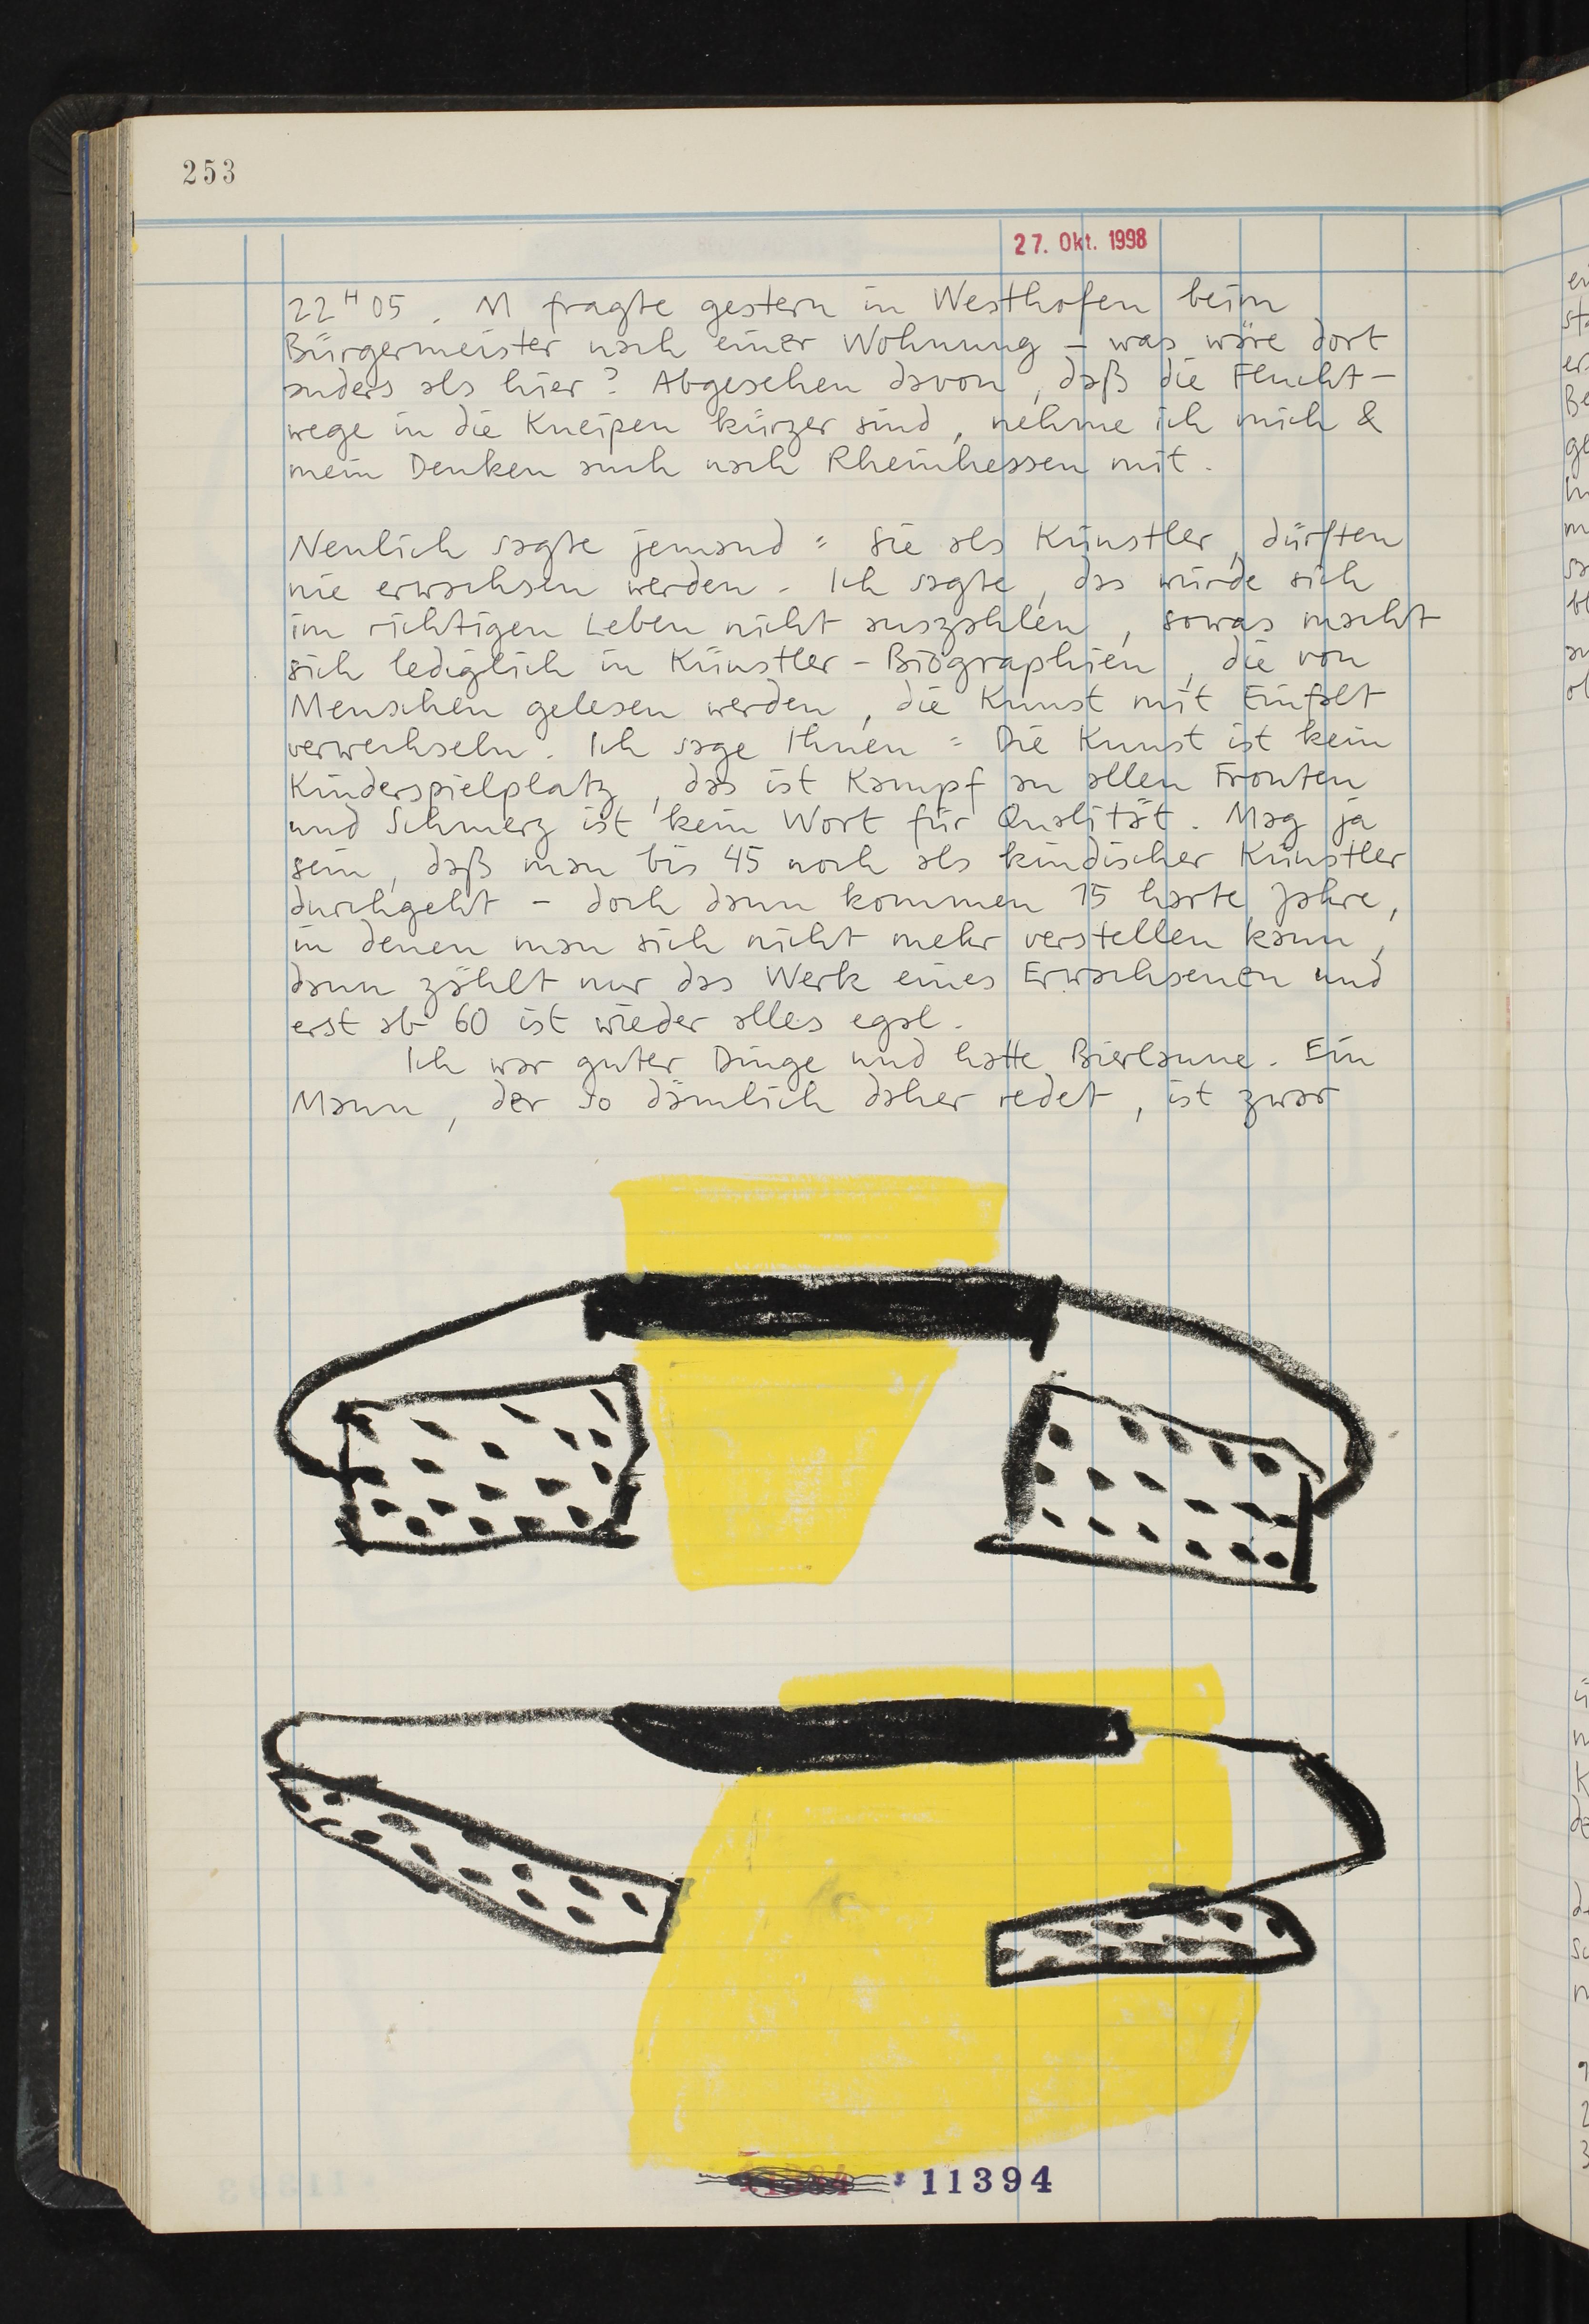 253
27. Okt. 1998
22 H 05. M fragte gestern in Westhofen beim
Bürgermeister nach einer Wohnung – was wäre dort
anders als hier? Abgesehen davon, daß die Flucht-
wege in die Kneipen kürzer sind, nehme ich mich &
mein Denken auch nach Rheinhessen mit.
Neulich sagte jemand: Sie als Künstler, dürften
nie erwachsen werden. Ich sagte, das würde sich
im richtigen Leben nicht auszahlen, sowas macht
sich lediglich in Künstler-Biographien, die von
Menschen gelesen werden, die Kunst mit Einfalt
verwechseln. Ich sage Ihnen: Die Kunst ist kein
Kinderspielplatz, das ist Kampf an allen Fronten
und Schmerz ist kein Wort für Qualität. Mag ja
sein, daß man bis 45 noch als kindischer Künstler
durchgeht – doch dann kommen 15 harte Jahre,
in denen man sich nicht mehr verstellen kann,
dann zählt nur das Werk eines Erwachsenen und
erst ab 60 ist wieder alles egal.
Ich war guter Dinge und hatte Bierlaune. Ein
Mann, der so dämlich daher redet, ist zwar
11394